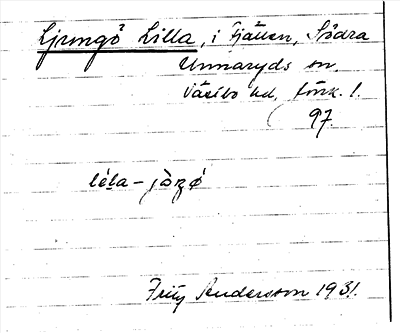 Ljungö Lilla, i Fjällen, Södra
Unnaryds sn.
Västbo hd, Jönk. l.
97
léla-jòŋø
Fritz Andersson 1931.